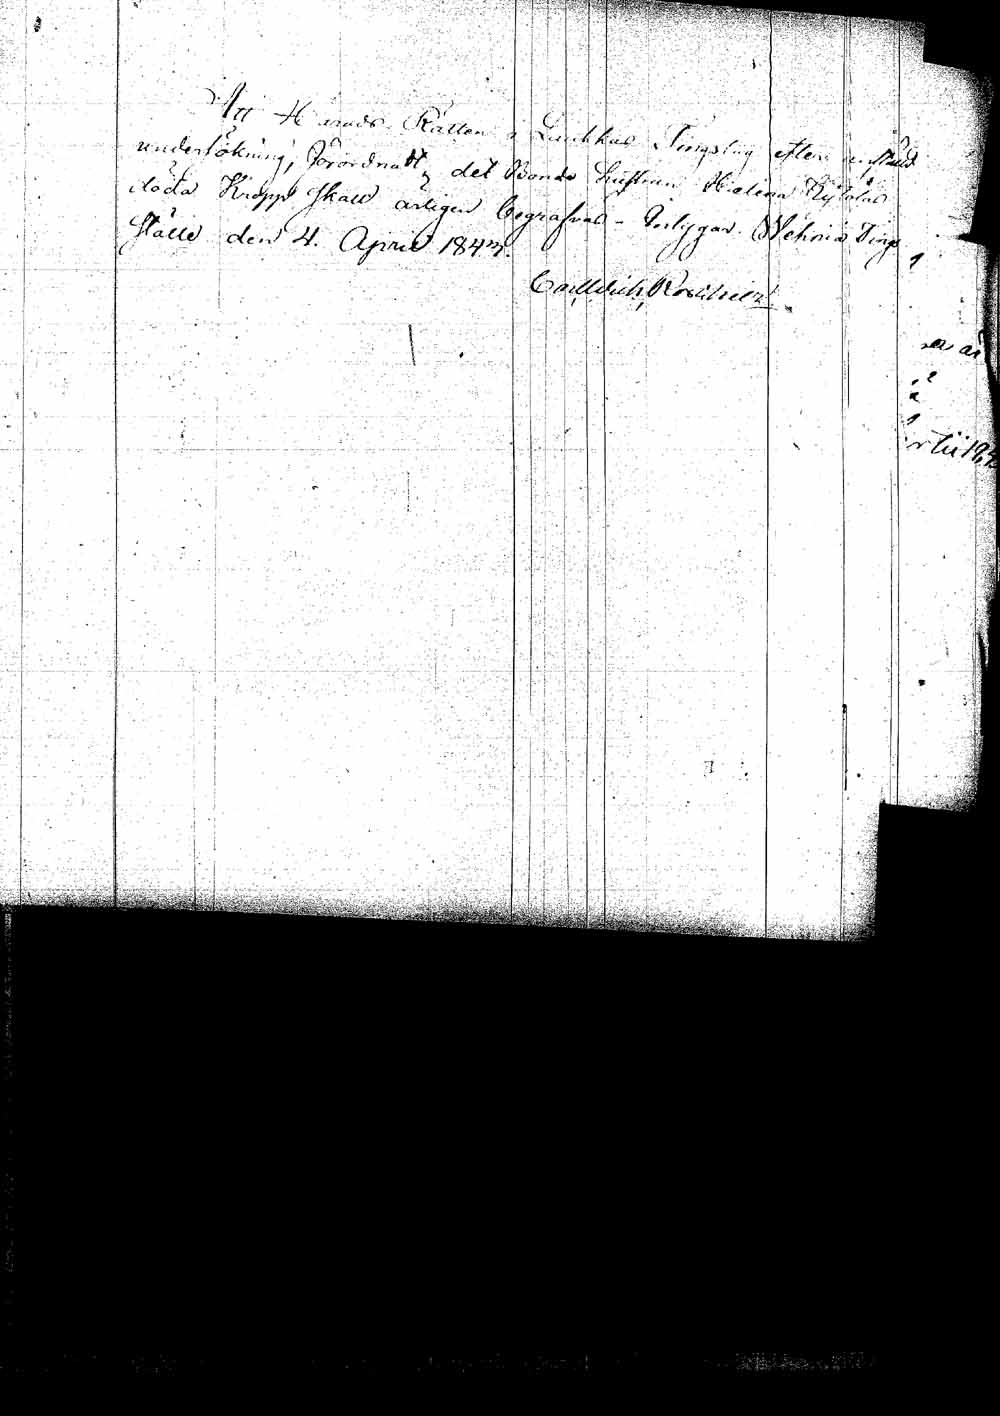 Att Härads Rätten i Laukkas Tingslag efter anstäld
undersökning, förordnatt, det Bonde hustrun Helena Kytöläs
döda Kropp skall ärligen begrafvas - betygar. Wehniä Tings
ställe den 4. April 1843.
Carl Ulrich Roschier